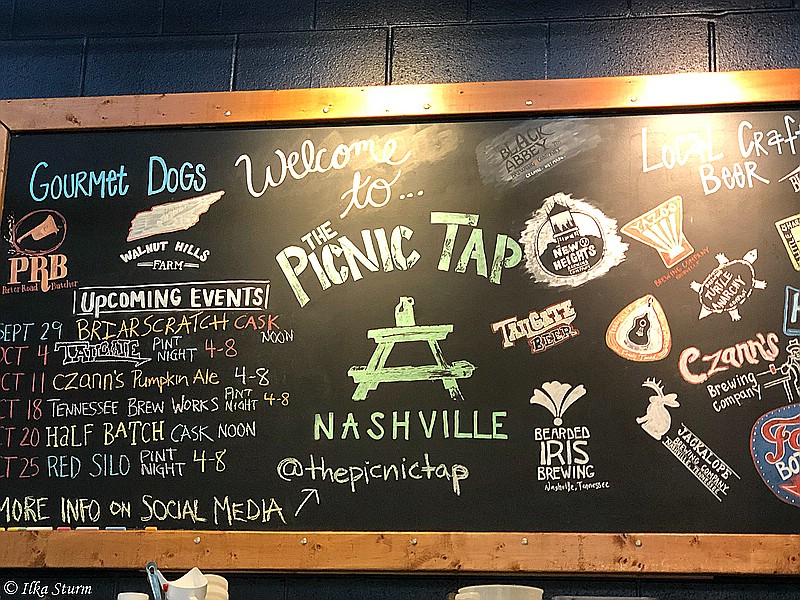 GOURMET DOGS
PRB
Porter Road Butcher
WALNUT HILLS
FARM
UPCOMING EVENTS
SEPT 29 BRIARSCRATCH CASK NOON
OCT 4 TAILGATE PINT NIGHT 4-8
CT 11 CZANN'S PUMPKIN ALE 4-8
CT 18 TENNESSEE BREW WORKS PINT NIGHT 4-8
CT 20 HALF BATCH CASK NOON
CT 25 RED SILO PINT NIGHT 4-8
MORE INFO ON SOCIAL MEDIA
Welcome
to...
THE
PICNIC TAP
NASHVILLE
@thepicnictap
BLACK
ABBEY
LOCAL CRAFT
BEER
NEW
HEIGHTS
YAZOO
BREWING COMPANY
NASHVILLE
TAILGATE
BEER
TURTLE
ANARCHY
CZANN'S
BREWING
COMPANY
BEARDED
IRIS
BREWING
Nashville, Tennessee
JACKALOPE
BREWING COMPANY
© Ilka Sturm